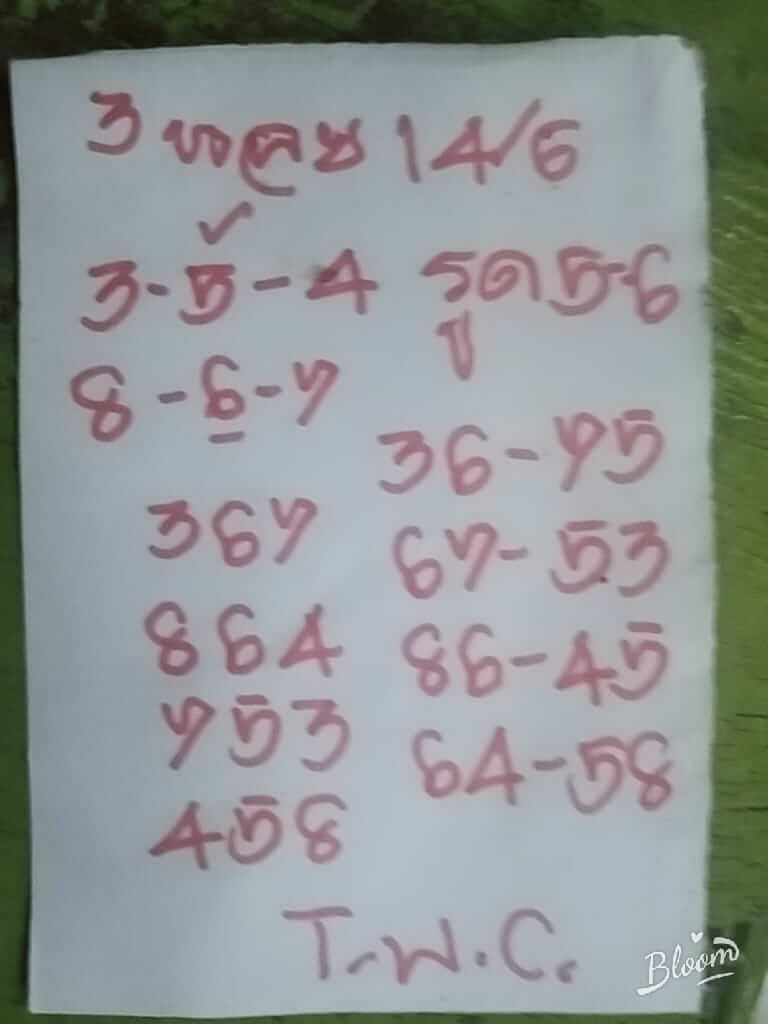 3 หลุย 14/6
3-5-4 รูด 5-6
8-6-7
ปู
36-75
367
67-53
864
86-45
753
64-58
458
T.พ.C.
Bloom